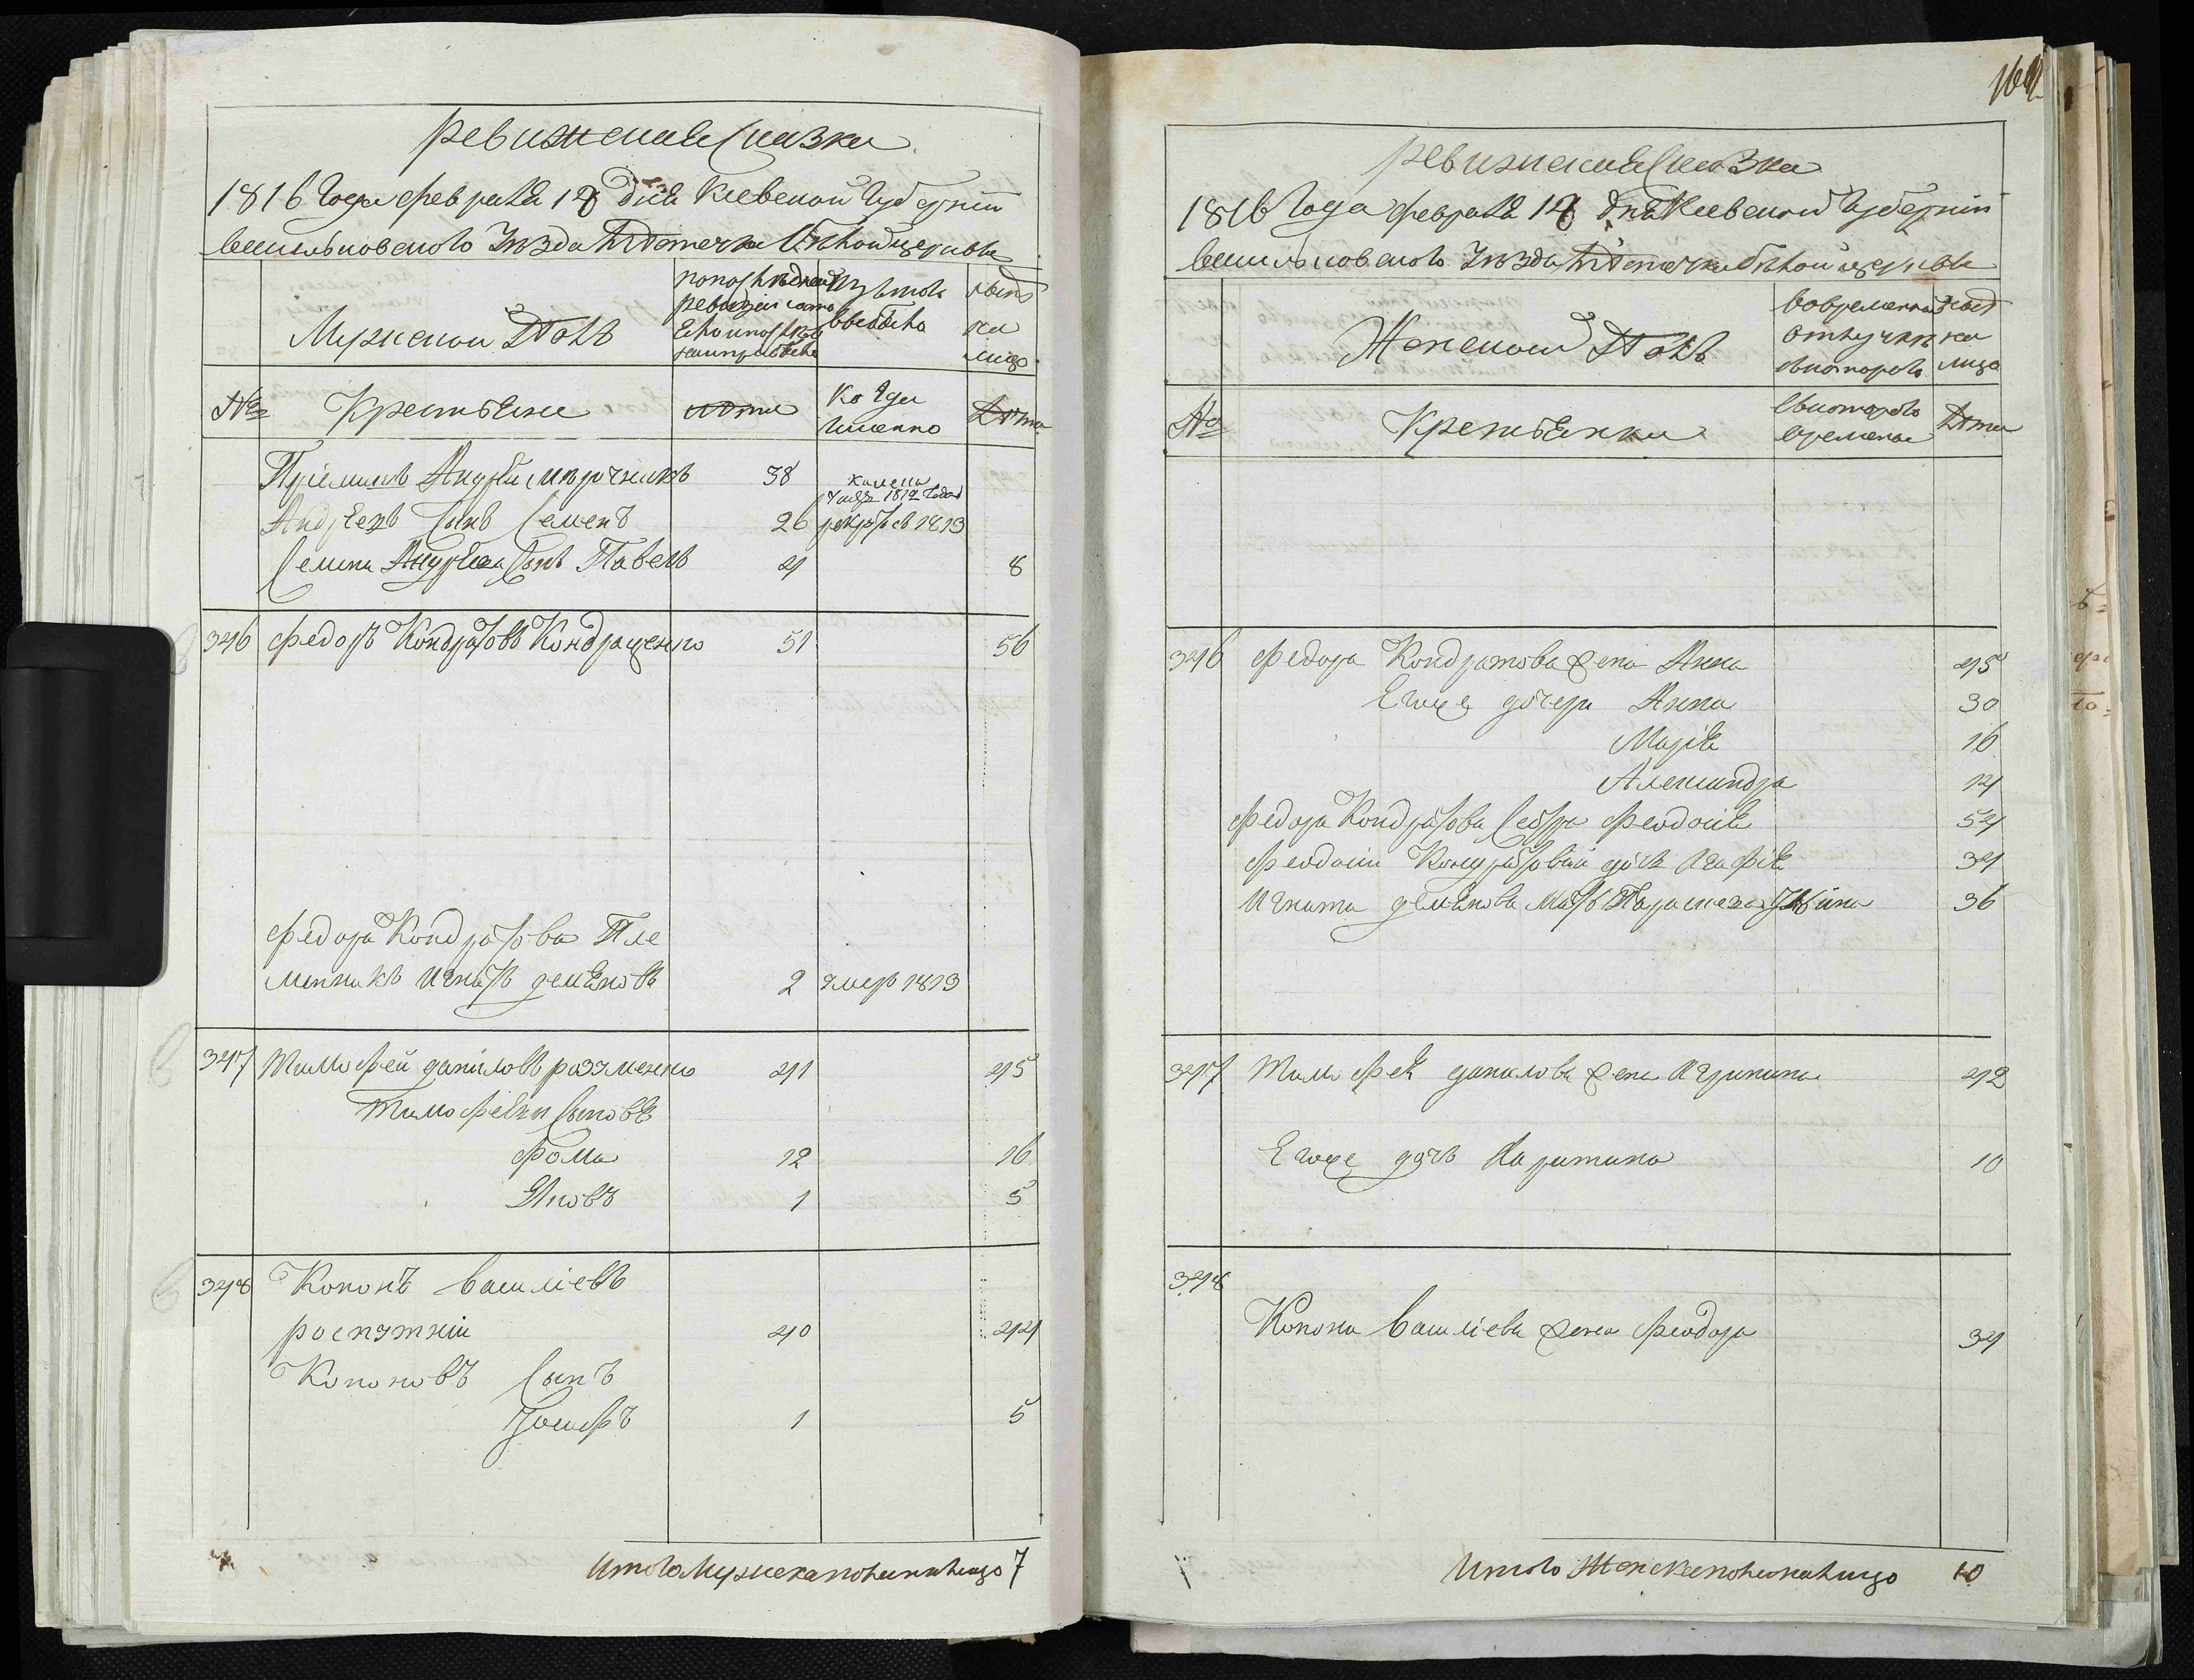 ревижская Сказка
1816 Года февраля 18 дня Киевской Губернии
васильковского Уезда местечка Белойцеркви
Мужеской Полъ
попоследней ревизии состояло и после прибыло
Изътого выбыло
ныне на лицо
№ Крестьяне
лета
Когда именно
лета
Андрей
38
1812 Года
Андреевъ Сынъ Семенъ 26 рекрутъ 1813
Семена Андреева Сынъ Павелъ 4 8
346 Федоръ Кондратовъ Кондращенко 51 56
Федора Кондратова Пле
менникъ Игнатъ демяновъ 2 умеръ 1813
347 Тимофей даниловъ 41 45
Тимофеевы Сыновя
Фома 12 16
Яковъ 1 5
348 Кононъ василиевъ
роспутний 40 44
Кононовъ Сынъ
Иосифъ 1 5
Итого мужеска пола на лицо 7
164
ревижская Сказка
1816 Года февраля 18 дня Киевской Губернии
васильковского Уезда местечка Белойцеркви
Женской Полъ
вовременной отлучке
скоторого
ныне на лицо
№ Крестьянки
скоторого времени
лета
346 Федора Кондратова жена Анна 45
Егоже дочери Анна 30
Мария 16
Александра 14
Федора Кондратова Сестра Феодосия 54
Феодосии Кондратовой дочь Агафия 34
Игната демянова мать Параскева 36
347 Тимофея данилова жена Агрипина 42
Егоже дочь Харитина 10
348
Конона василиева жена Феодора 34
Итого Женска пола на лицо 10